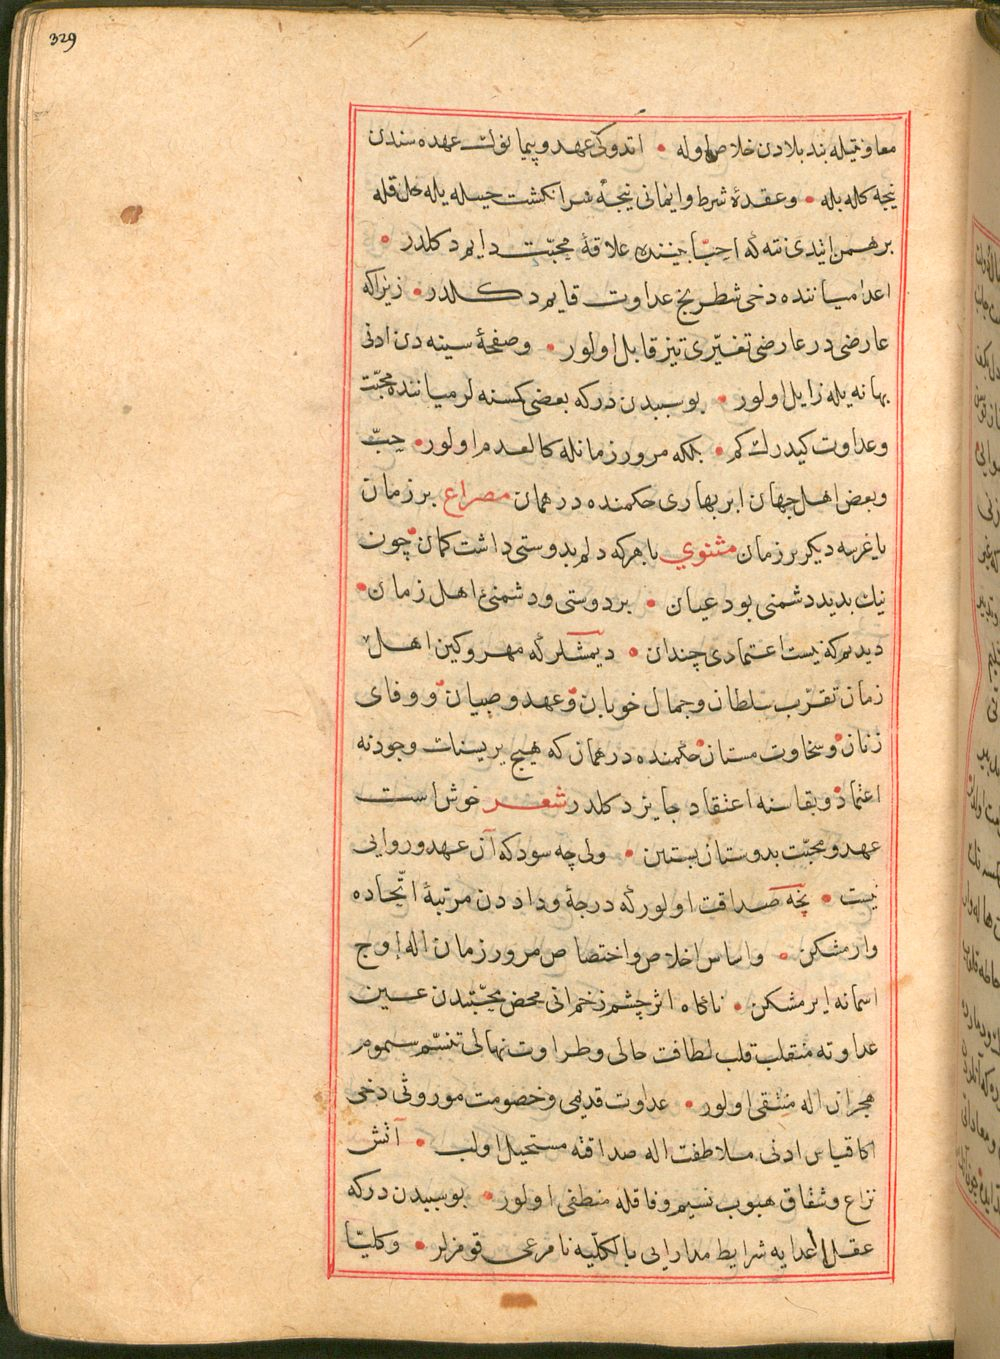 329
معاونتیله بند بلادن خلاص اوله • اتدوکی عهد و پیمانوڭ عهده سندن
نیجه کله بله • و عقدهٔ شرط و ایمانی نیجه سرانکشت حیله یله حل قله
برهمن ایتدی نته که احبّا بیننده علاقهٔ محبّت دایم دکلدر •
اعدا میاننده دخی شطرنج عداوت قایم دکلدر • زیرا که
عارضی در عارضی تغیّری تیز قابل اولور • و صفحهٔ سینه دن ادنی
بهانه یله زایل اولور • بو سببدن در که بعضی کسنه لر میاننده محبّت
و عداوت کیدرك کم • بلکه مرور زمانله کالعدم اولور • حبّ
و بعض اهل جهان ابر بهاری حکمنده در همان مصراع بر زمان
یاغر سه دیکر بر زمان مثنوي با هر که دلم بدوستی داشت کمان • چون
نیك بدید دشمنی بود عیان • بر دوستی و دشمنئ اهل زمان •
دیدیم که نیست اعتمادی چندان • دیمشلر که مهر و کین اهل
زمان تقرّب سلطان و جمال خوبان و عهد و صبیان و وفای
زنان و سخاوت مستان حکمنده در همان که هیچ برینك وجودنه
اعتماد و بقاسنه اعتقاد جایز دکلدر شعر خوش است
عهد و محبّت بدوستان بستن • ولی چه سود که آن عهد و روایی
نیست • نچه صداقت اولور که درجهٔ وداد دن مرتبهٔ اتّحاده
وارمشکن • و اساس اخلاص و اختصاص مرور زمان اله اوج
اسمانه ایرمشکن • ناکاه اثر چشم زخمانی محض محبّتدن عین
عداوته منقلب قلب لطافت حالی و طراوت نهالی تنسّم سموم
هجران اله منتقی اولور • عداوت قدیمی و خصومت موروثی دخی
اکا قیاس ادنی ملاطفت اله صداقته مستحیل اولب • آتش
نزاع و شقاق هبوب نسیم وفاقله منطفی اولور • بو سببدن در که
عقلا اعدایه شرایط مدارایی بالکلّیه نامرعی قومزلر • و کلیّا